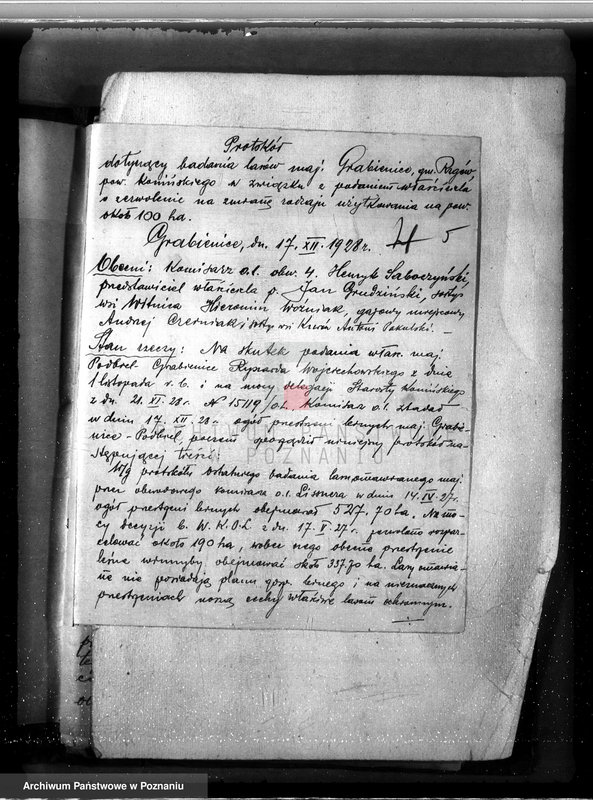 Protokół
dotyczący badania lasów maj. Grabienice, gm. Rzgów
pow. Konińskiego w związku z podaniem właściciela
o zezwolenie na zmianę rodzaju użytkowania na pow.
około 100 ha.
Grabienice, dn. 17.XII.1928 r.
5
Obecni: Komisarz o.l. obw. 4. Henryk Saboczyński,
przedstawiciel właściciela p. Jan Grudziński, sołtys
wsi Witnica Hieronim Woźniak, gajowy miejscowy
Andrzej i sołtys wsi Antoni Pakulski. —
Stan rzeczy: Na skutek podania właśc. maj.
Podbiel-Grabienice Ryszarda Wojciechowskiego z dnia
1 listopada r. b. i na mocy delegacji Starosty Konińskiego
z dn. 21.XI.28 r. N 15119/O.L. Komisarz o.l. zbadał
w dniu 17.XII.28 r. ogół przestrzeni leśnych maj. Grabie-
nice-Podbiel, poczem sporządził niniejszy protokół na-
stępującej treści:
W/g protokółu ostatniego badania lasu omawianego maj.
przez obwodowego komisarza o.l. Lissnera w dniu 14.IV.27 r.
ogół przestrzeni leśnych obejmował 527,70 ha. Na mo-
cy decyzji b. W.K.O.L. z dn. 17.V.27 r. pozwolono rozpar-
celować około 190 ha, wobec czego obecnie przestrzenie
leśne winnyby obejmować około 337.70 ha. Lasy omawia-
ne nie posiadają planu gosp. leśnego i na nieznacznych
przestrzeniach noszą cechy właściwe lasom ochronnym.
ARCHIWUM PAŃSTWOWE
W POZNANIU
Archiwum Państwowe w Poznaniu